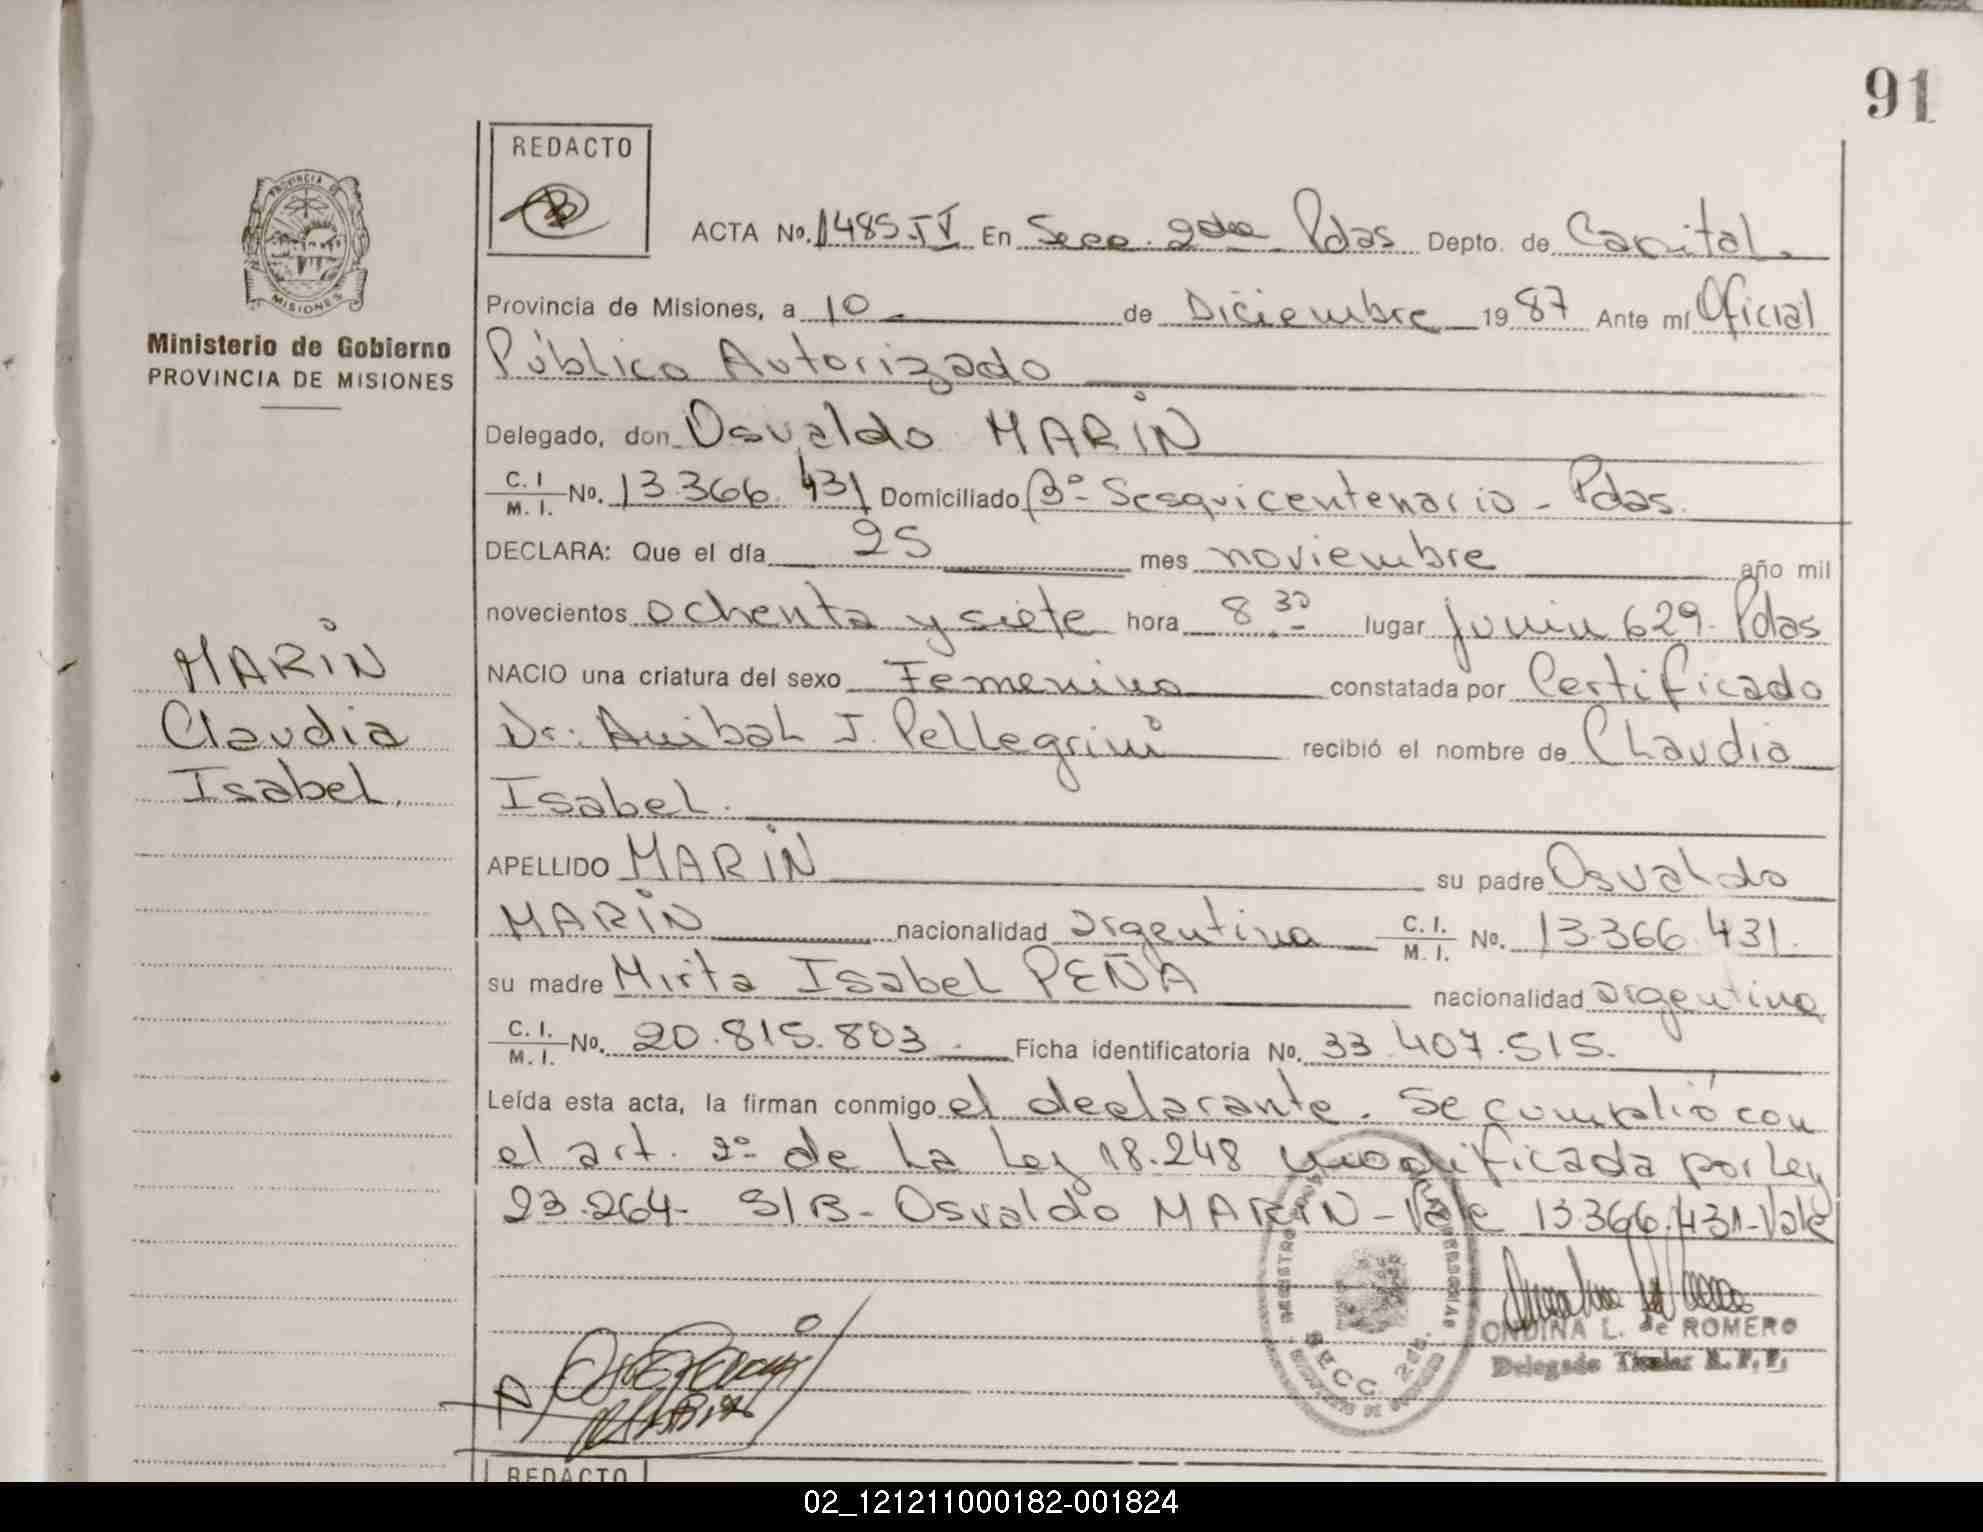 91
REDACTO
PROVINCIA DE
MISIONES
Ministerio de Gobierno
PROVINCIA DE MISIONES
ACTA No. 1485 IV En Secc. 2da Pdas Depto. de Capital.
Provincia de Misiones, a 10 de Diciembre 1987 Ante mí Oficial
Público Autorizado
Delegado, don Osvaldo MARIN
C. I. / M. I. No. 13.366.431 Domiciliado Bº Sesquicentenario - Pdas.
DECLARA: Que el día 25 mes noviembre año mil
novecientos ochenta y siete hora 8.30 lugar Junin 629- Pdas
NACIO una criatura del sexo Femenino constatada por Certificado
Dr: Anibal J. Pellegrini recibió el nombre de Claudia
Isabel.
APELLIDO MARIN su padre Osvaldo
MARIN nacionalidad argentina C. I. / M. I. No. 13.366.431.
su madre Mirta Isabel PEÑA nacionalidad argentina
C. I. / M. I. No. 20.815.803. Ficha identificatoria No. 33.407.515.
Leída esta acta, la firman conmigo el declarante. Se cumplió con
el art. 2º de la Ley 18.248 modificada por Ley
23.264- S/B- Osvaldo MARIN - Vale 13.366.431-Vale
MARIN
Claudia
Isabel.
SECC. 2da.
ONDINA L. de ROMERO
Delegado Titular R. P. P.
REDACTO
02_121211000182-001824